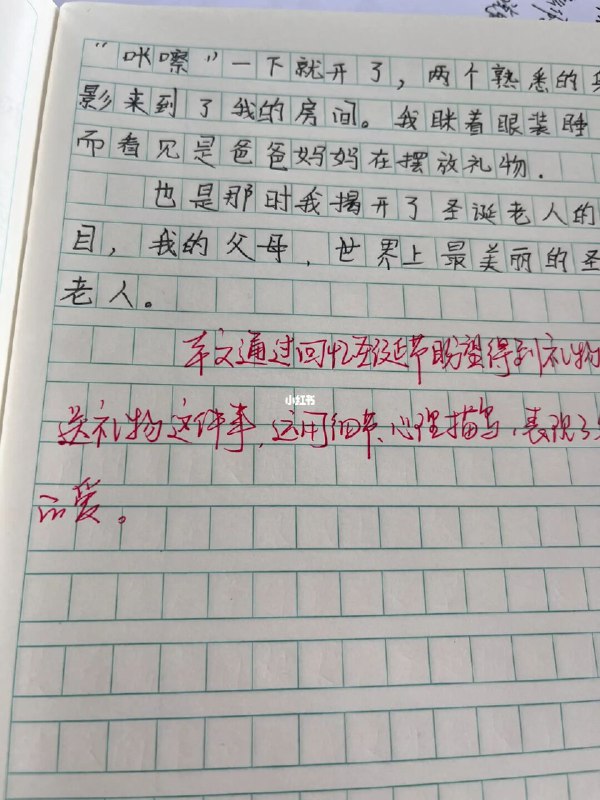 “咔嚓”一下就开了，两个熟悉的
影来到了我的房间。我眯着眼装睡
而看见是爸爸妈妈在摆放礼物．
也是那时我揭开了圣诞老人的
目，我的父母，世界上最美丽的圣
老人。
本文通过回忆圣诞节盼望得到礼物
小红书
送礼物这件事，运用细节、心理描写，表现了
的爱。